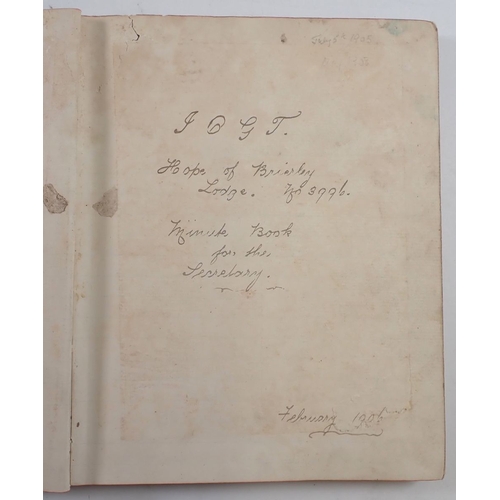 I O G T.
Hope of Brierley
Lodge. No 3996.
Minute Book
for the
Secretary.
February 1905